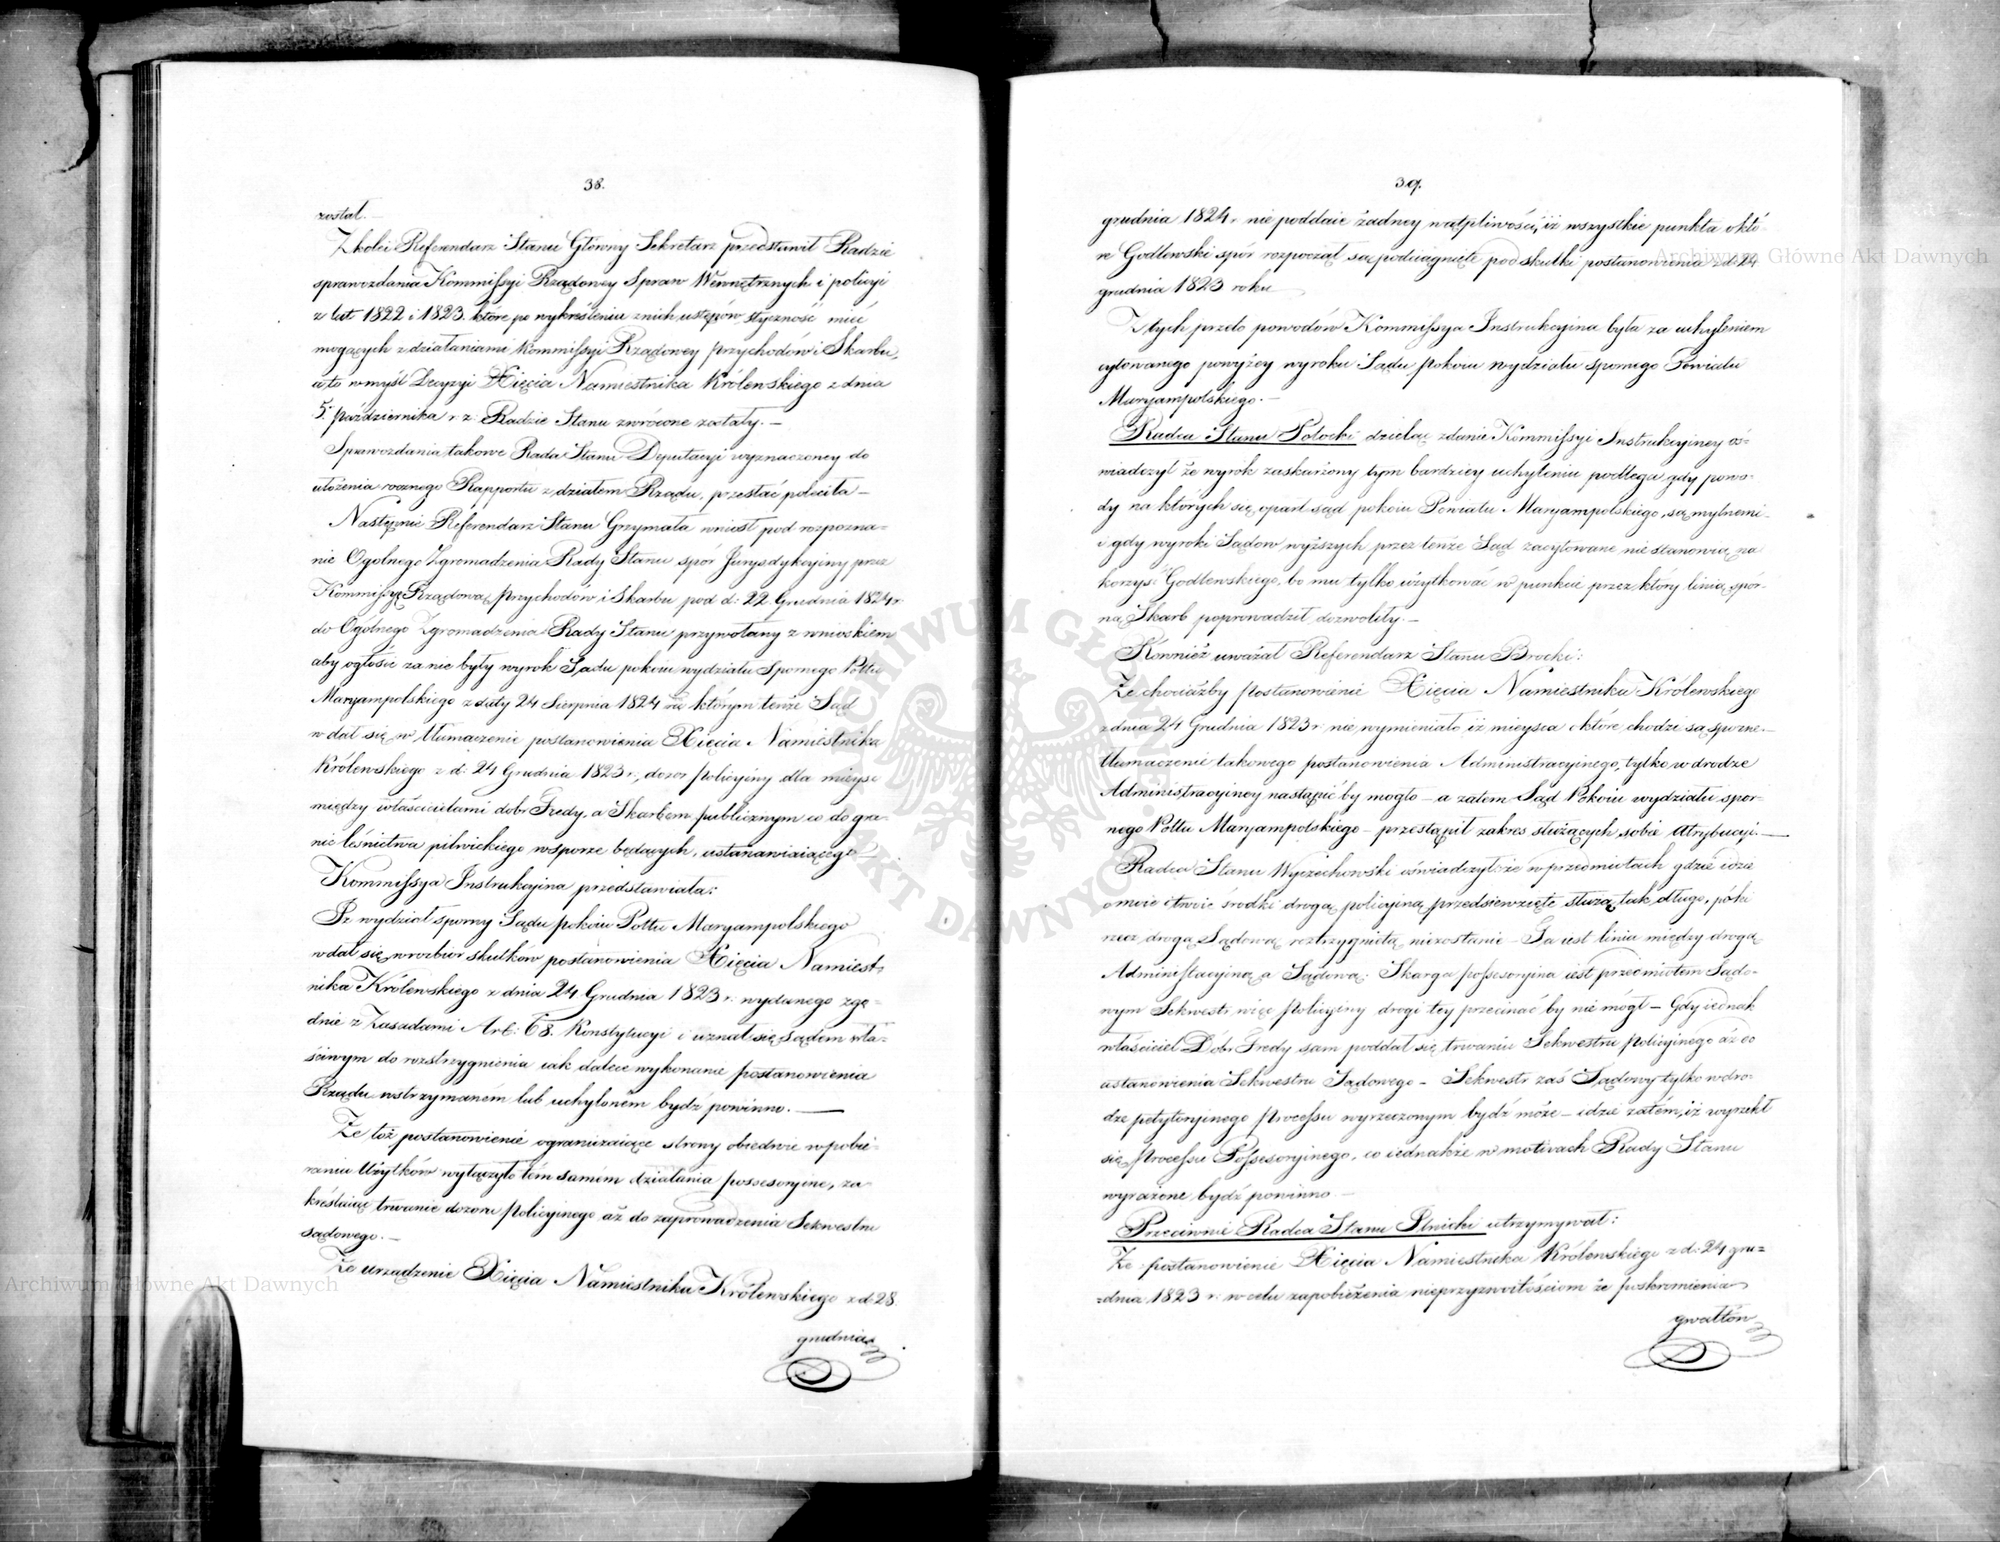 38.
został. —
Z kolei Referendarz Stanu Główny Sekretarz przedstawił Radzie
sprawozdania Kommissyi Rządowey Spraw Wewnętrznych i policyi
z lat 1822 i 1823. które po wykreśleniu z nich ustępów styczność mieć
mogących z działaniami Kommissyi Rządowey Przychodów i Skarbu,
a to w myśl Decyzyi Xięcia Namiestnika Królewskiego z dnia
5. Października r. z. Radzie Stanu zwrócone zostały. —
Sprawozdania takowe Rada Stanu Deputacyi wyznaczoney do
ułożenia rocznego Rapportu z działem Rządu, przesłać poleciła —
Następnie Referendarz Stanu Grzymała wniósł pod rozpozna-
nie Ogólnego Zgromadzenia Rady Stanu spór Jurysdykcyiny przez
Kommissyę Rządową Przychodów i Skarbu pod d: 22 Grudnia 1824 r.
do Ogólnego Zgromadzenia Rady Stanu przywołany z wnioskiem
aby ogłosić za nie były wyrok Sądu pokoiu wydziału Spornego Pottu
Maryampolskiego z daty 24 Sierpnia 1824 w którym tenże Sąd
wdał się w tłumaczenie postanowienia Xięcia Namiestnika
Królewskiego z d: 24 Grudnia 1823 r., dozór Policyiny dla mieysc
między właścicielami dóbr Fredy, a Skarbem publicznym co do gra-
nic leśnictwa pilwickiego w sporze będących, ustanawiaiącego —
Kommissya Instrukcyina przedstawiała:
Iż wydział sporny Sądu pokoiu Pottu Maryampolskiego
wdał się w rozbior skutków postanowienia Xięcia Namiest-
nika Królewskiego z dnia 24 Grudnia 1823 r. wydanego zgo-
dnie z Zasadami Art: 68. Konstytucyi i uznał się Sądem wła-
ściwym do rozstrzygnienia iak dalece wykonanie postanowienia
Rządu wstrzymanem lub uchylonem bydź powinno. —
Że toż postanowienie ograniczaiące strony obiedwie w pobie-
raniu Użytków wyłączyło tém samém działania possessoryine, za-
kreślaiąc trwanie dozoru Policyinego aż do zaprowadzenia Sekwestru
sądowego. —
Że urządzenie Xięcia Namiestnika Królewskiego z d. 28.
grudnia
39.
grudnia 1824 r. nie poddaie żadney wątpliwości, iż wszystkie punkta o któ-
re Godlewski spór rozpoczął są podciągnięte pod skutki postanowienia z d: 24
grudnia 1823 roku
Z tych przeto powodów Kommissya Instrukcyina była za uchyleniem
cytowanego powyżey wyroku Sądu pokoiu wydziału spornego Powiatu
Maryampolskiego. —
Radca Stanu Potocki dzieląc zdanie Kommissyi Instrukcyiney oś-
wiadczył że wyrok zaskarżony tym bardziey uchyleniu podlega gdy powo-
dy na których się oparł sąd pokoiu Powiatu Maryampolskiego, są mylnemi
i gdy wyroki Sądów wyższych przez tenże Sąd zacytowane nie stanowią na
korzyść Godlewskiego, bo mu tylko użytkować w punkcie przez który linię spor-
ną Skarb poprowadził dozwoliły. —
Również uważał Referendarz Stanu Brocki:
Że chociażby Postanowienie Xięcia Namiestnika Królewskiego
z dnia 24 Grudnia 1823 r. nie wymieniało iż mieysca o które chodzi są sporne —
tłumaczenie takowego postanowienia Administracyinego, tylko w drodze
Administracyiney nastąpić by mogło — a zatem Sąd Pokoiu wydziału spor-
nego Pottu Maryampolskiego — przestąpił zakres służących sobie Atrybucyi. —
Radca Stanu Wyczechowski oświadczył: że w przedmiotach gdzie idzie
o moie i twoie środki drogą policyiną przedsięwzięte służą tak długo, póki
rzecz drogą Sądową roztrzygniętą nie zostanie — Ta iest linia między drogą
Administracyiną a Sądową: Skarga possessoryina iest przedmiotem Sądo-
wym Sekwestr więc Policyiny drogi tey przecinać by nie mógł — Gdy iednak
właściciel Dóbr Fredy sam poddał się trwaniu Sekwestru Policyinego aż do
ustanowienia Sekwestru Sądowego — Sekwestr zaś Sądowy tylko w dro-
dze petytoryinego Processu wyrzeczonym bydź może — idzie zatém, iż wyrzekł
się Processu Possessoryinego, co iednakże w motivach Rady Stanu
wyrażone bydź powinno —
Przeciwnie Radca Stanu Plnicki utrzymywał:
Że postanowienie Xięcia Namiestnika Królewskiego z d: 24 gru-
dnia 1823 r. w celu zapobieżenia nieprzyzwoitościom że poskromienia
gwałtów
Archiwum Główne Akt Dawnych
Archiwum Główne Akt Dawnych
ARCHIWUM GŁÓWNE AKT DAWNYCH